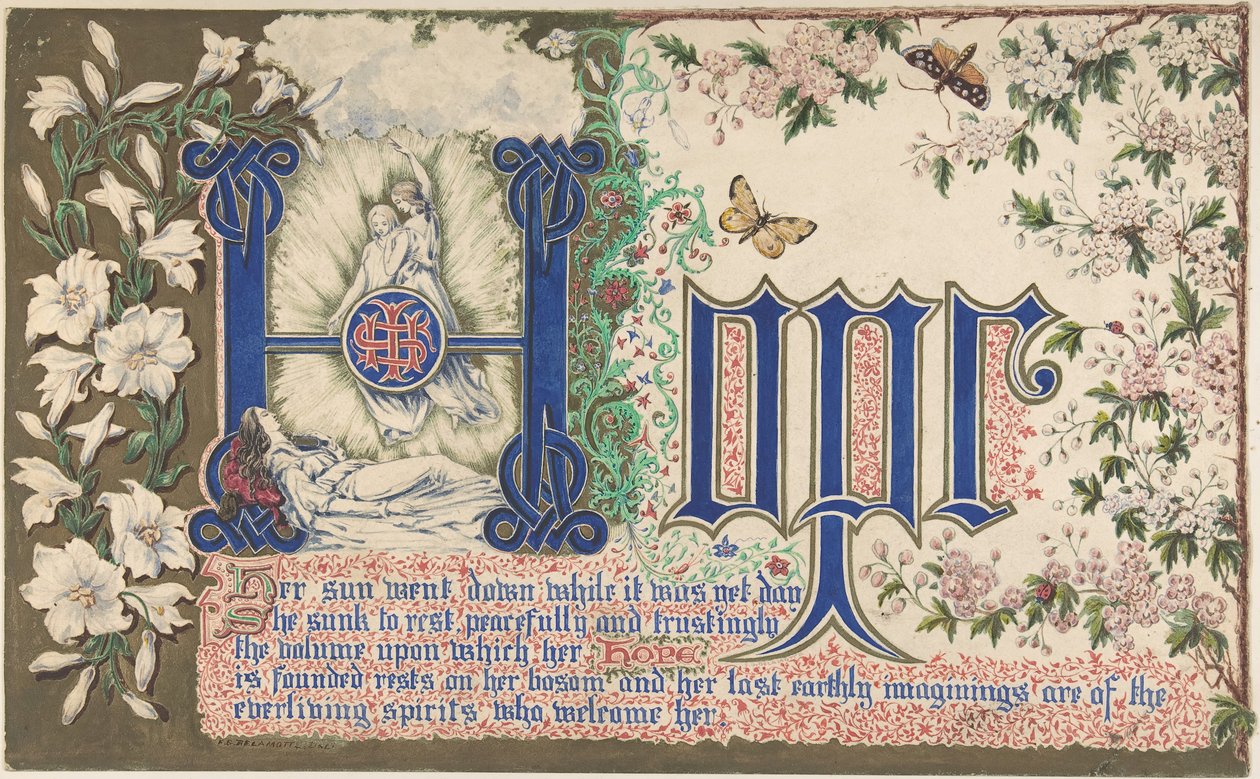 Hope
IHS
Her sun went down while it was yet day
She sunk to rest peacefully and trustingly
the volume upon which her Hope
is founded rests on her bosom and her last earthly imaginings are of the
everliving spirits who welcome her.
F.G. DELAMOTTE. DEL.